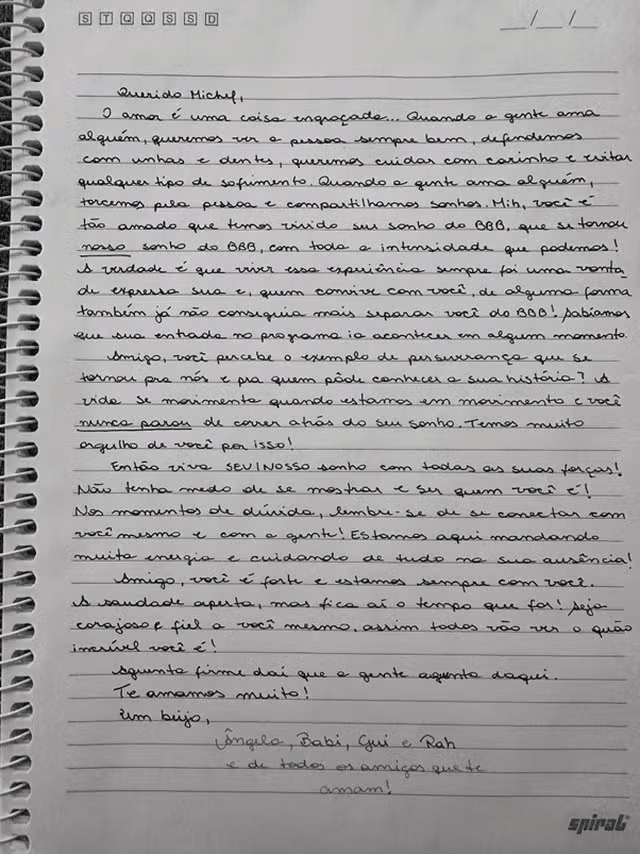 S T Q Q S S D
__/__/__
Querido Michel,
O amor é uma coisa engraçada... Quando a gente ama
alguém, queremos ver a pessoa sempre bem, defendemos
com unhas e dentes, queremos cuidar com carinho e evitar
qualquer tipo de sofrimento. Quando a gente ama alguém,
torcemos pela pessoa e compartilhamos sonhos. Mih, você é
tão amado que temos vivido seu sonho do BBB, que se tornou
nosso sonho do BBB, com toda a intensidade que podemos!
A verdade é que viver essa experiência sempre foi uma vonta_
de expressa sua e, quem convive com você, de alguma forma
também já não conseguia mais separar você do BBB! Sabíamos
que sua entrada no programa ia acontecer em algum momento.
Amigo, você percebe o exemplo de perseverança que se
tornou pra nós e pra quem pôde conhecer a sua história? A
vida se movimenta quando estamos em movimento e você
nunca parou de correr atrás do seu sonho. Temos muito
orgulho de você por isso!
Então viva SEU/NOSSO sonho com todas as suas forças!
Não tenha medo de se mostrar e ser quem você é!
Nos momentos de dúvida, lembre-se de se conectar com
você mesmo e com a gente! Estamos aqui mandando
muita energia e cuidando de tudo na sua ausência!
Amigo, você é forte e estamos sempre com você.
A saudade aperta, mas fica aí o tempo que for! Seja
corajoso e fiel a você mesmo, assim todos vão ver o quão
incrível você é!
Aguenta firme daí que a gente aguenta daqui.
Te amamos muito!
Um beijo,
Ângela, Babi, Gui e Rah
e de todos os amigos que te
amam!
spiral